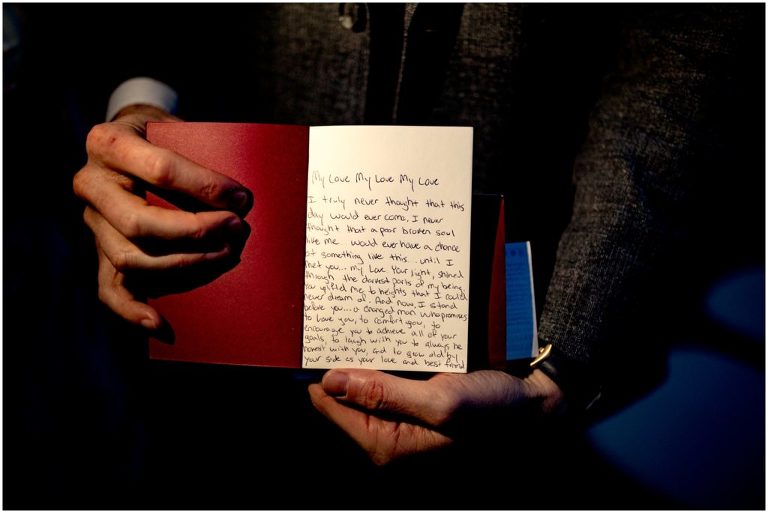 My Love My Love My Love
I truly never thought that this
day would ever come, I never
thought that a poor broken soul
like me would ever have a chance
at something like this...until I
met you... my Love. Your light, shined
through the darkest parts of my being.
You me to heights that I could
never dream of. And now, I stand
before you... a changed man who promises
to love you, to comfort you, to
encourage you to achieve all of your
goals, to laugh with you to always be
honest with you, and to grow old by
your side as your love and best friend